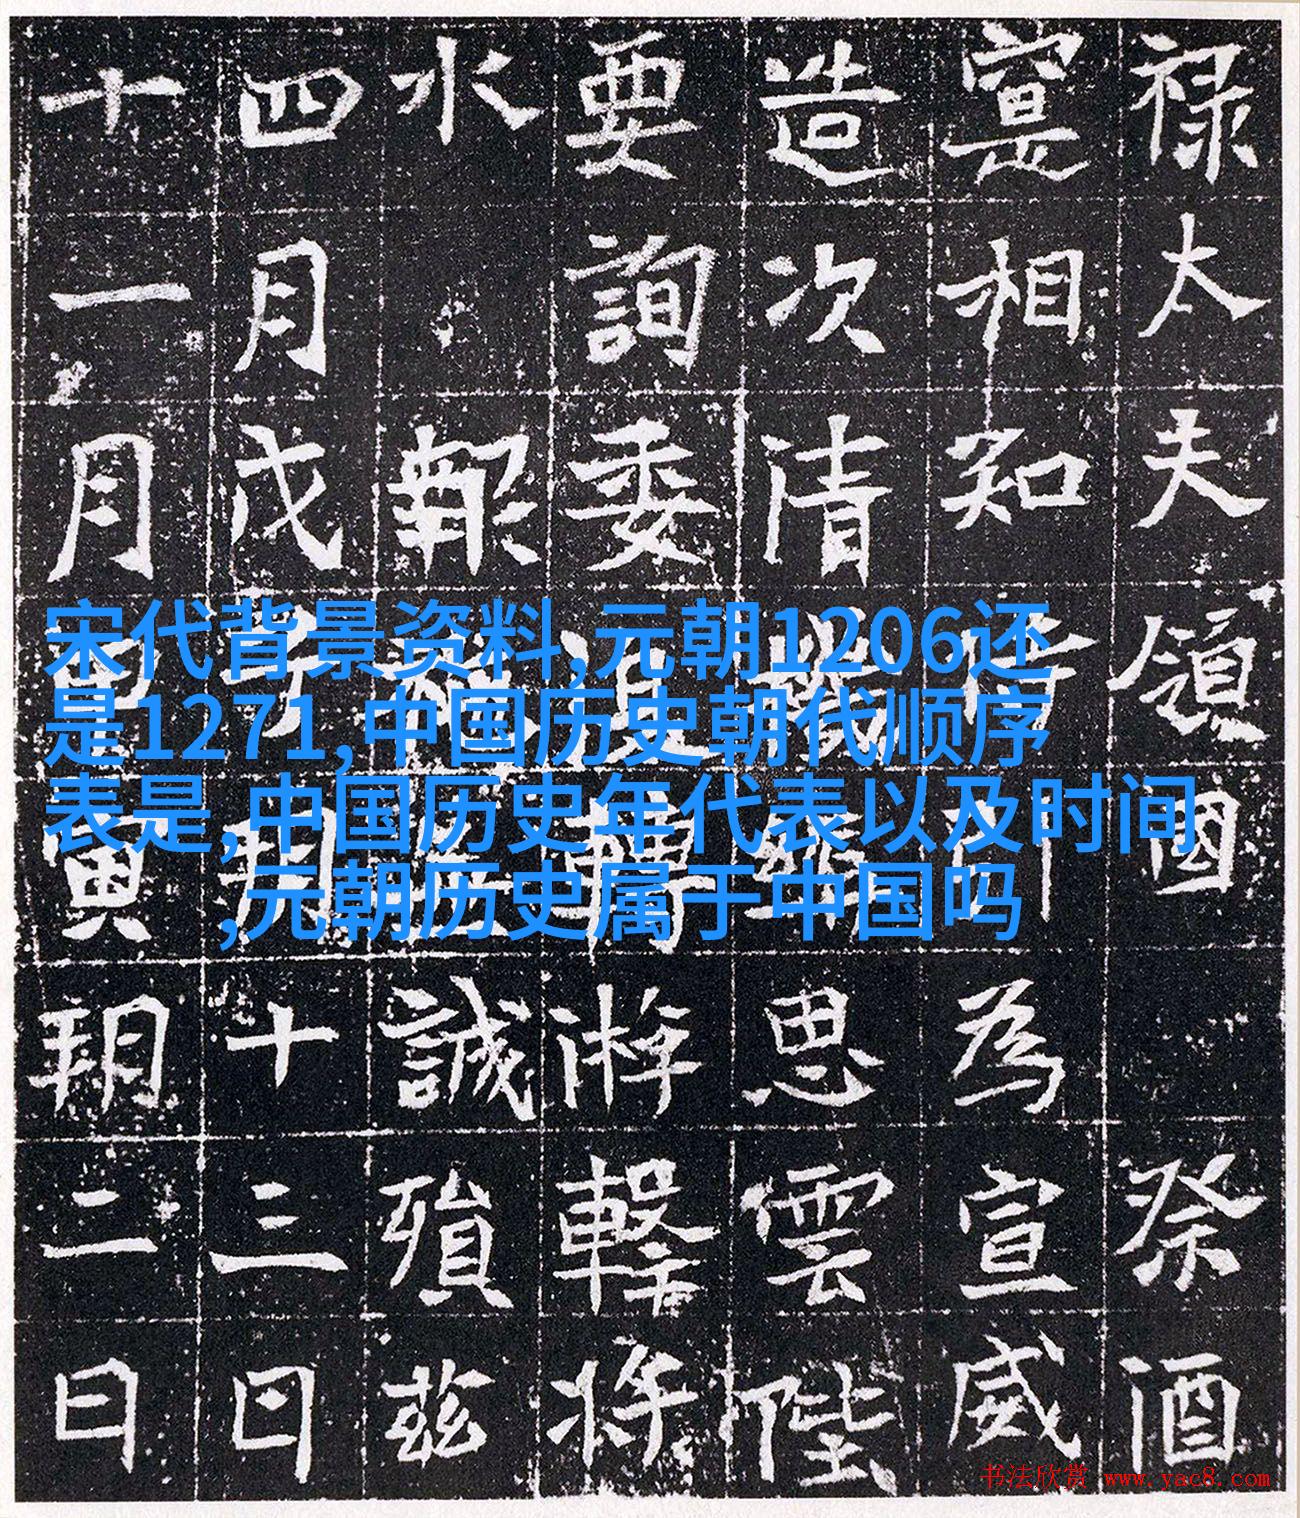 禄太夫領國祭酒
寔相知為宣威
造次清思雲陛
要詢委游擊將
水報誠殞茲
四月戊子朔十三日
十一月寅朔二日
宋代背景资料,元朝1206还
是1271,中国历史朝代顺序
表是,中国历史年代表以及时间
,元朝历史属于中国吗
书法欣赏 www.yac8.com